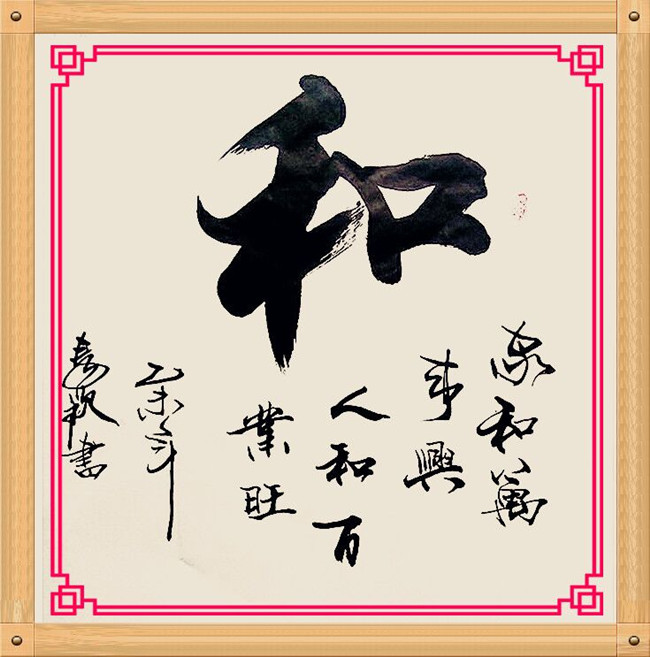 和
家和萬
事興
人和百
業旺
乙未年
書